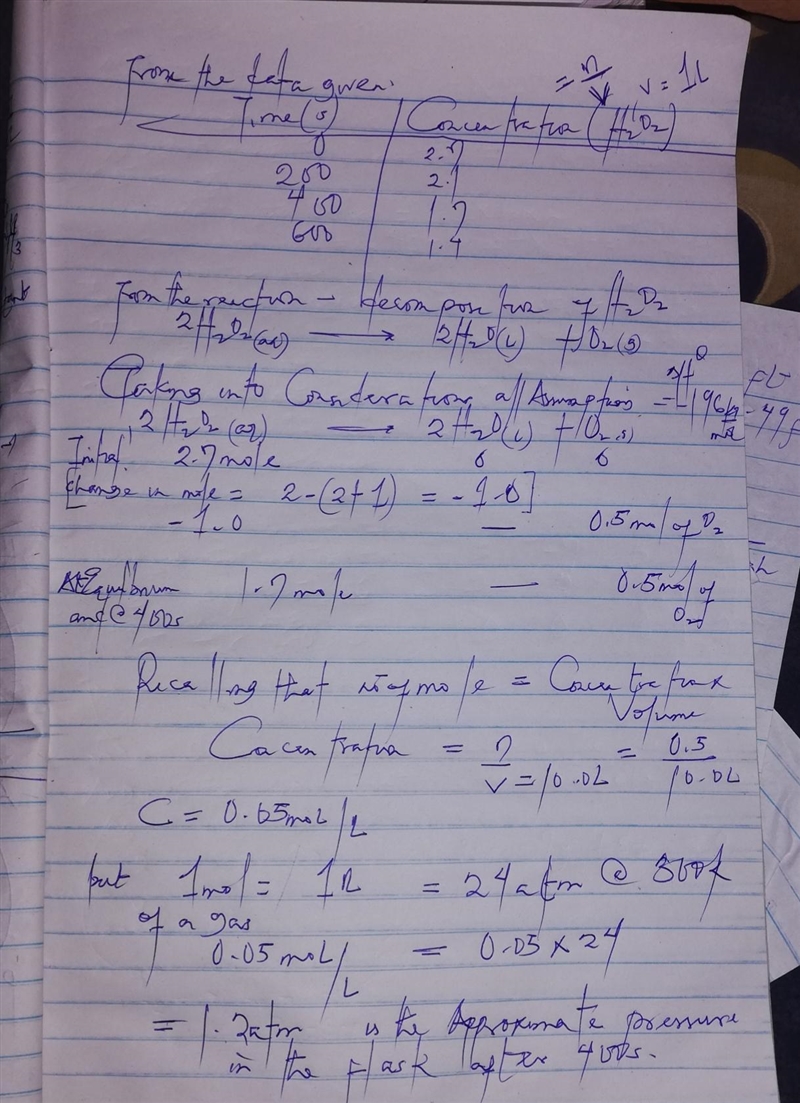 From the data given:
= n/V V = 1L
Time (s) Concentration (H2O2)
0 2.7
200 2.1
400 1.7
600 1.4
From the reaction - decomposition of H2O2
2H2O2(aq) → 2H2O(l) + O2(g)
Taking into Considerations all Assumptions = -196kJ/mol
2H2O2(aq) → 2H2O(l) + O2(g)
Initial: 2.7mole 0 0
[Change in mole = 2-(2+1) = -1.0]
-1.0 — 0.5mol of O2
Equilibrium 1.7 mole — 0.5mol of O2
and @ 400s
Recalling that no of mole = Concentration x Volume
Concentration = n/V = 10.0L = 0.5/10.0L
C = 0.05mol/L
but 1mol = 1L = 24atm @ 300k
of a gas
0.05 mol/L = 0.05 x 24
= 1.2atm is the Approximate pressure
in the flask after 400s.